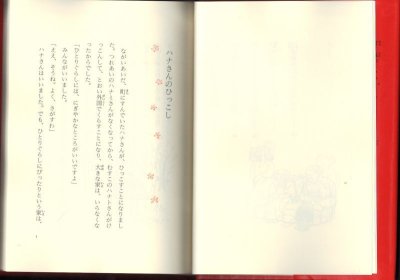 ハナさんのひっこし
ながいあいだ、町にすんでいたハナさんが、ひっこすことになりまし
た。つれあいのハナトさんがなくなってから、むすこのハナトさんがけ
っこんして、とおい外国でくらすことになり、大きな家は、いらなくな
ったからでした。
「ひとりぐらしには、にぎやかなところがいいですよ」
みんながいいました。
「ええ、そうね、よく、さがすわ」
ハナさんはいいました。でも、ひとりぐらしにぴったりという家は、